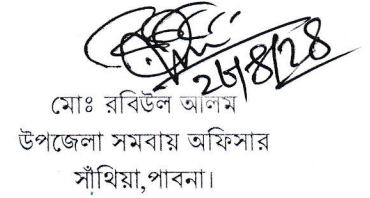 মোঃ রবিউল আলম
উপজেলা সমবায় অফিসার
সাঁথিয়া,পাবনা।